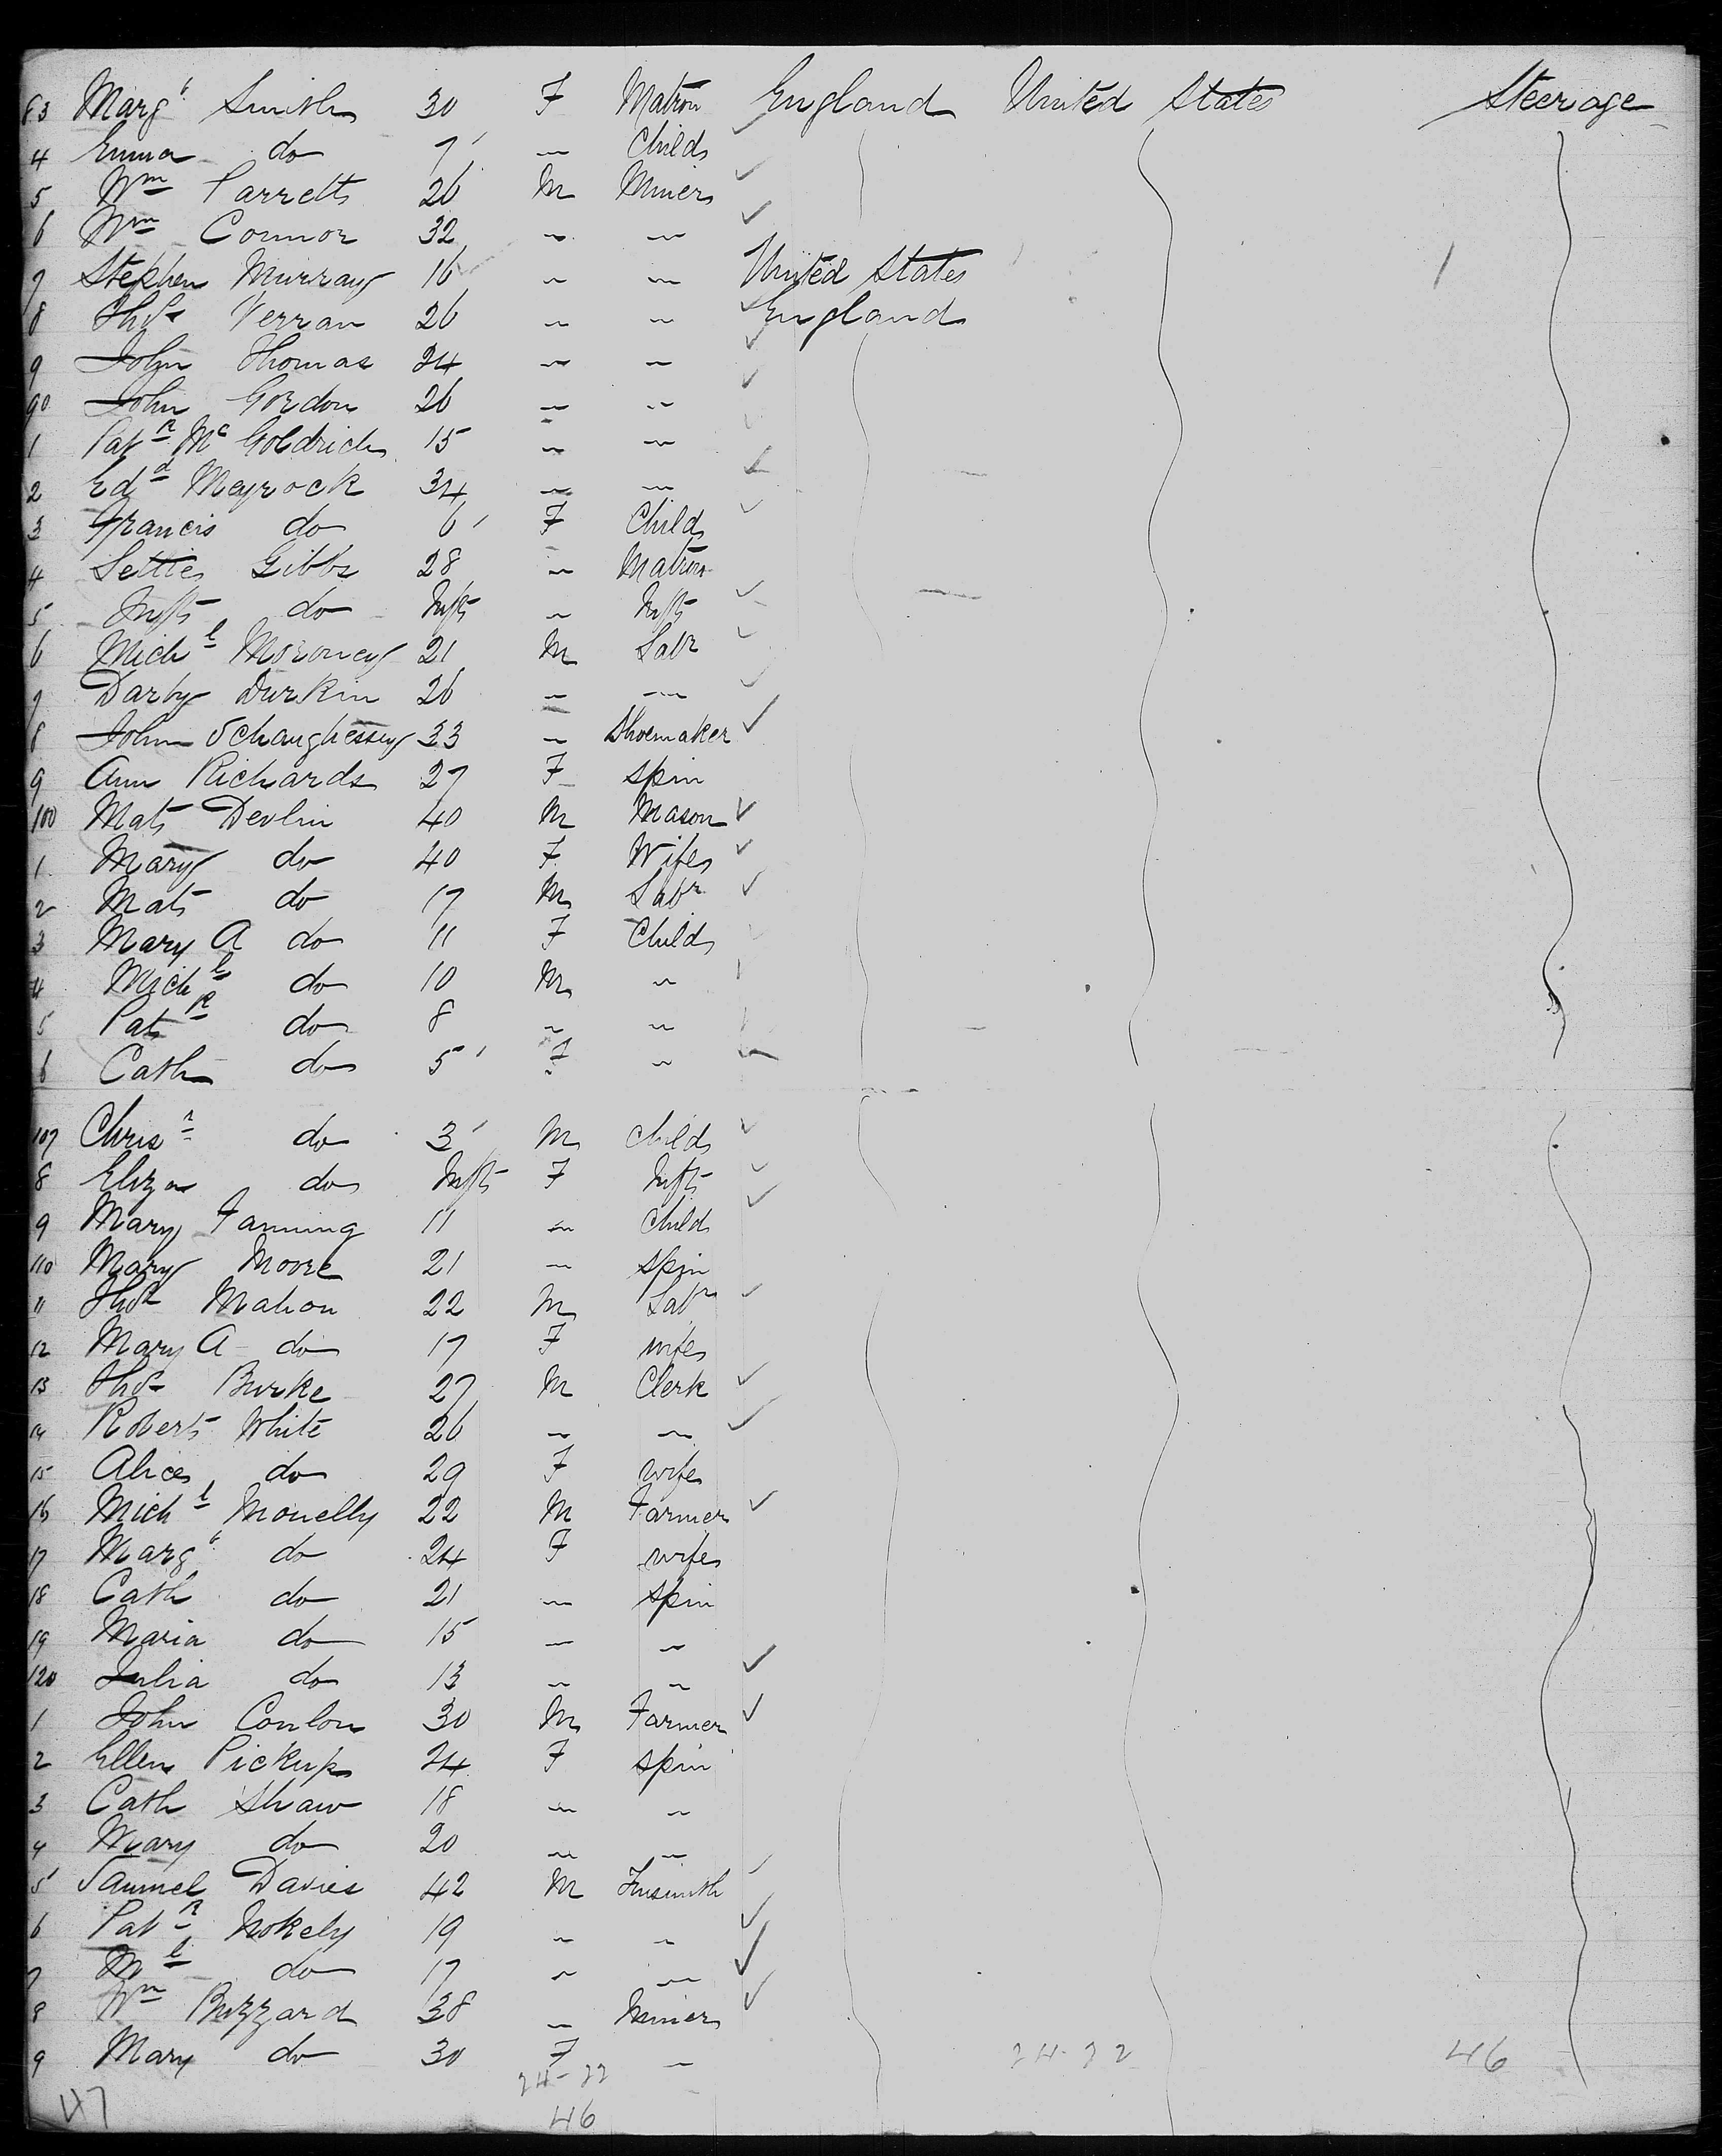 83 Margt Smith 30 F Matron England United States Steerage
4 Emma do 7 " Child
5 Wm Parrett 26 M Miner
6 Wm Connor 32 " "
7 Stephen Murray 16 " " United States 1
8 Thos Verran 26 " " England
9 John Thomas 24 " "
90 John Gordon 26 " "
1 Patk McGoldrick 15 " "
2 Edd Meyrock 34 " "
3 Francis do 6 F Child
4 Lettie Gibbs 28 " Matron
5 Inft do Inft " Inft
6 Michl Moroney 21 M Labr
7 Darby Durkin 26 " "
8 John OShaughessey 33 " Shoemaker
9 Ann Richards 27 F Spin
100 Mat Devlin 40 M Mason
1 Mary do 40 F Wife
2 Mat do 17 M Labr
3 Mary A do 11 F Child
4 Michl do 10 M "
5 Patk do 8 " "
6 Cath do 5 F "
107 Chrisr do 3 M Child
8 Eliza do Inft F Inft
9 Mary Fanning 11 " Child
110 Mary Moore 21 " Spin
11 Thos Mahon 22 M Labr
12 Mary A do 17 F wife
13 Thos Burke 27 M Clerk
14 Robert White 26 " "
15 Alice do 29 F wife
16 Michl Monelly 22 M Farmer
17 Margt do 24 F wife
18 Cath do 21 " Spin
19 Maria do 15 " "
120 Julia do 13 " "
1 John Conlon 30 M Farmer
2 Ellen Pickup 24 F Spin
3 Cath Shaw 18 " "
4 Mary do 20 " "
5 Samuel Davies 42 M Tinsmith
6 Patk Nokely 19 " "
7 Ml do 17 " "
8 Wm Buzzard 38 " Miner
9 Mary do 30 F "
24-22 24-22 46
47 46